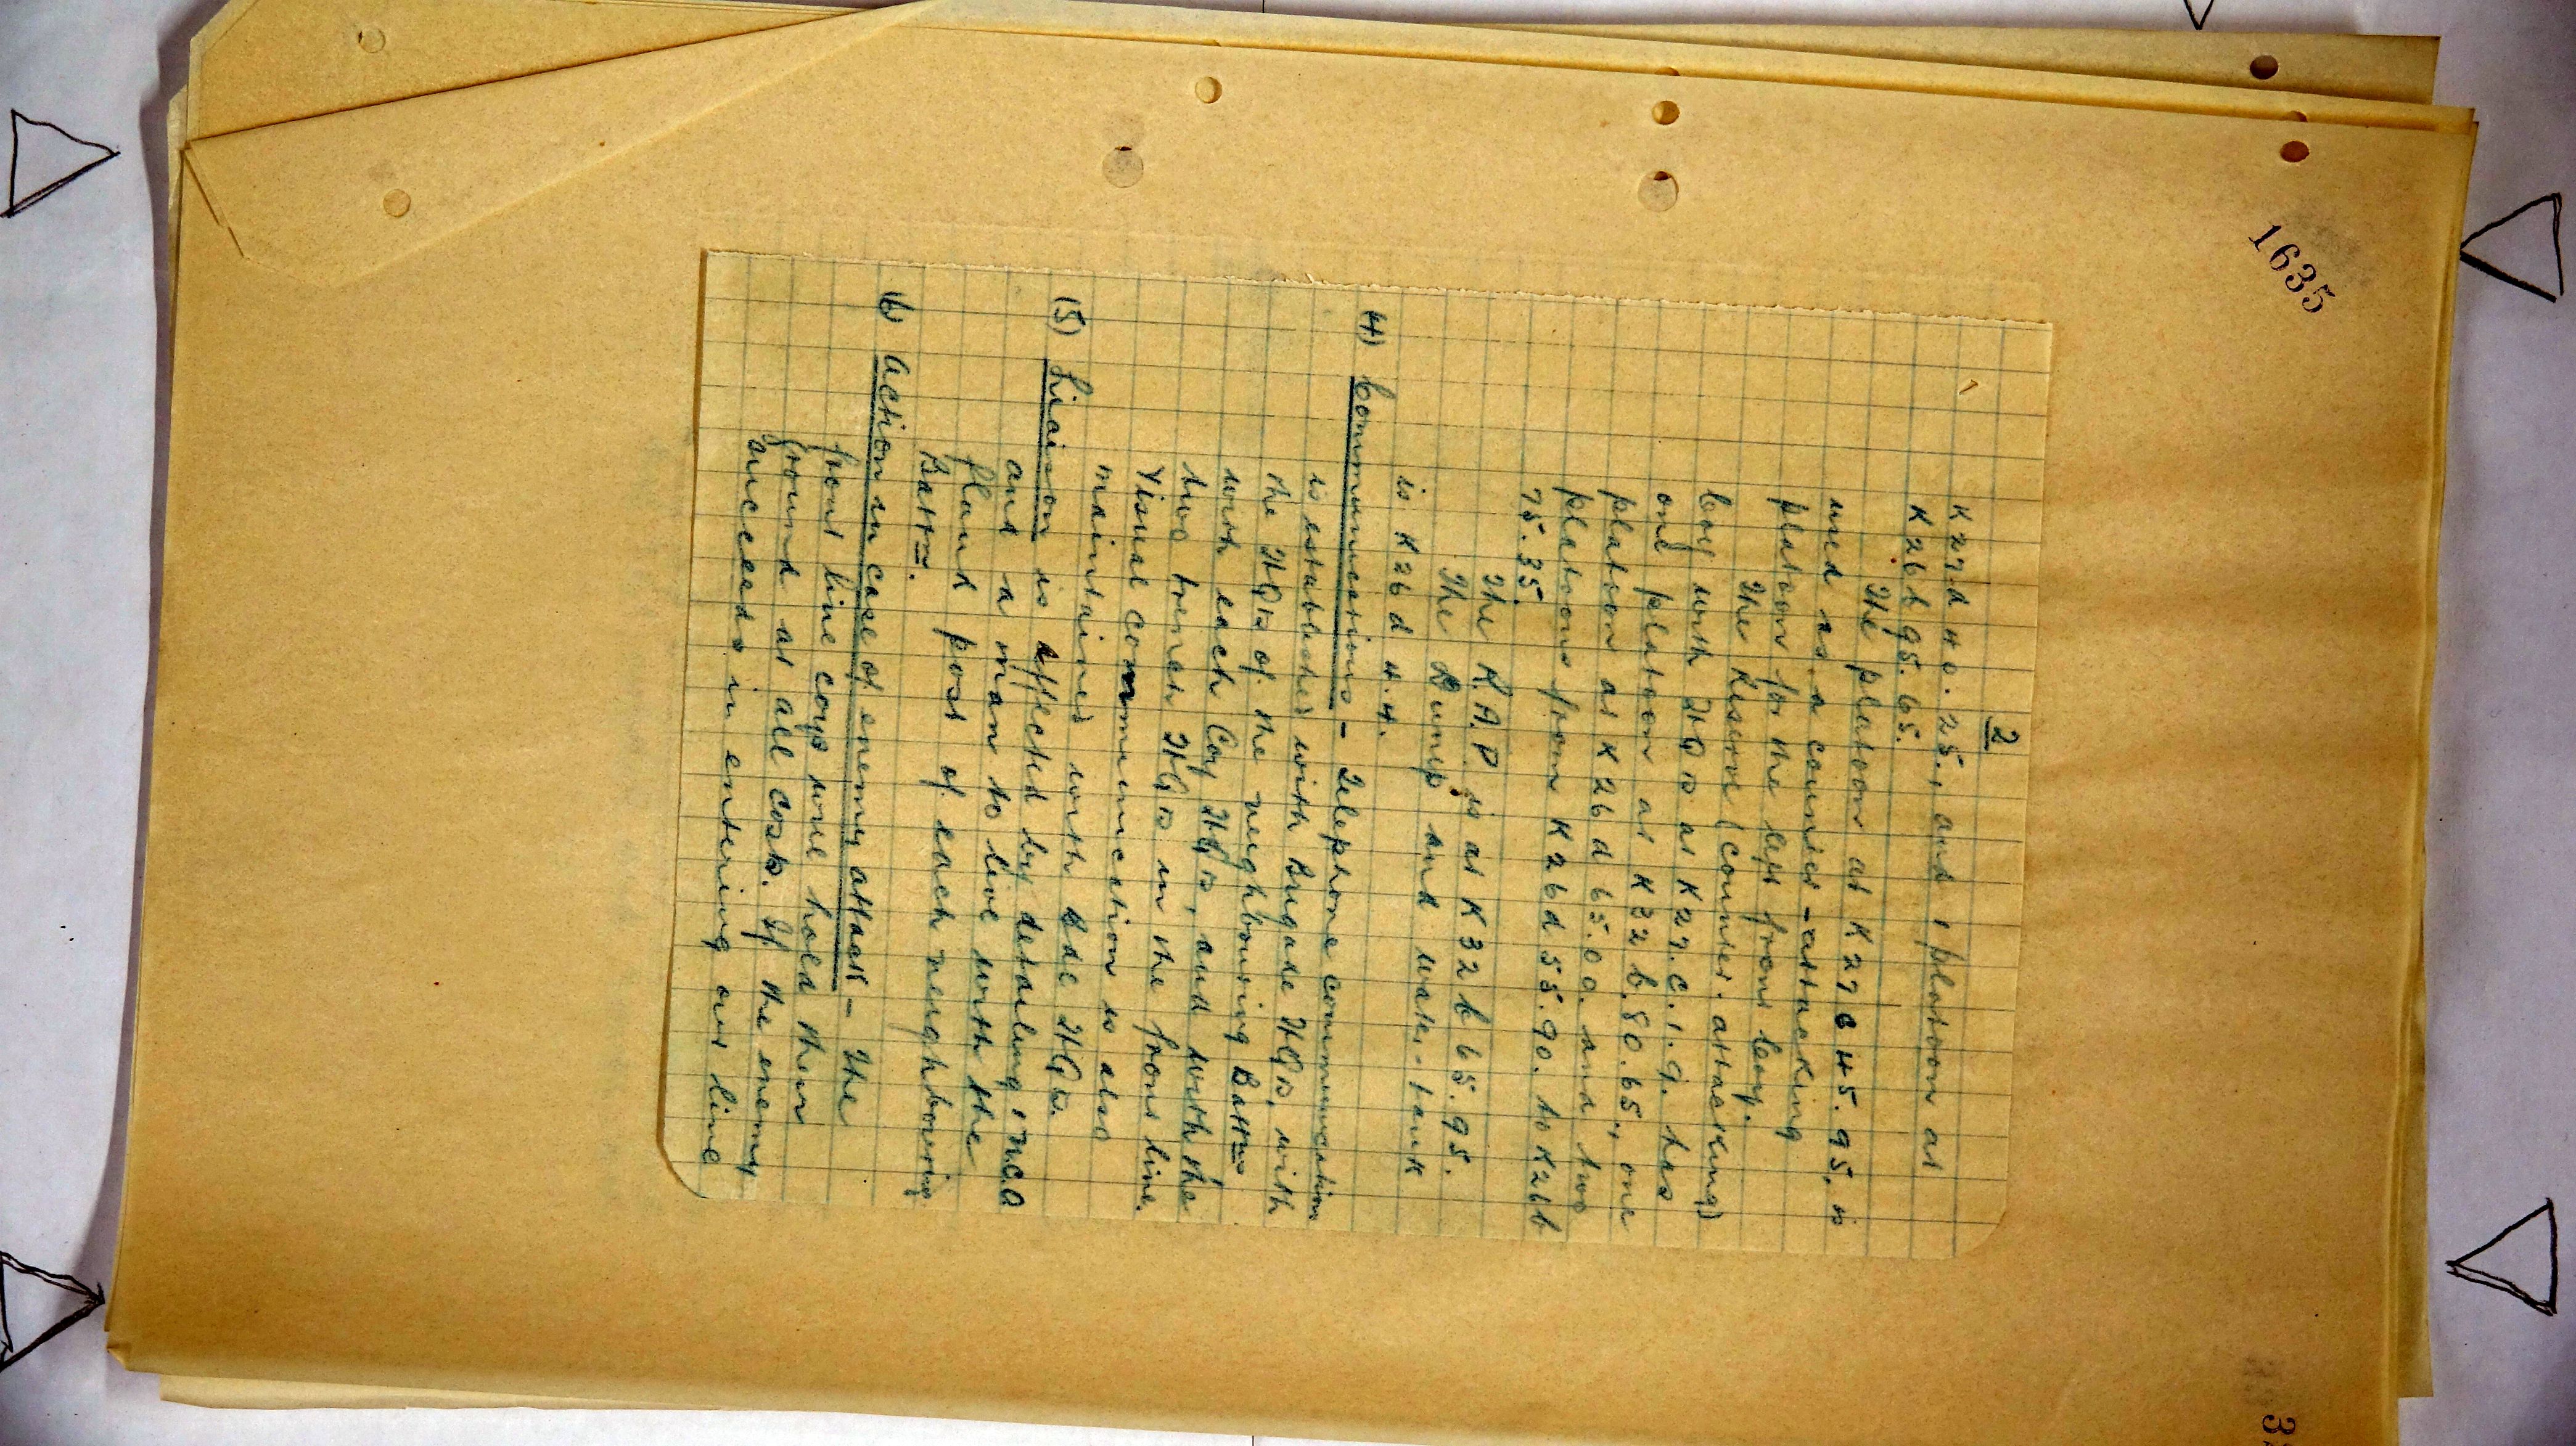 1635
2
K27d 40.25., and 1 platoon at
K26b 95.65.
The platoon at K27c 45.95. is
used as a counter-attacking
platoon for the left front Coy.
The Reserve (counter-attacking)
Coy with HQrs at K27.c.1.9. has
one platoon at K32b.80.65., one
platoon at K26d 65.00. and two
platoons from K26d 55.90. to K26b
75.35
The R.A.P. is at K32b 65.95.
The Dump and water-tank
is K26d 4.4.
4) Communications - Telephone communication
is established with Brigade HQrs, with
the HQrs of the neighbouring Battns
with each Coy HQrs, and with the
two trench HQrs in the front line.
Visual communication is also
maintained with Bde HQrs.
(5) Liaison is effected by detailing 1 N.C.O
and a man to live with the
flank post of each neighbouring
Battn.
(6) Action in case of enemy attack - The
front line coys will hold their
ground at all costs. If the enemy
succeeds in entering our line